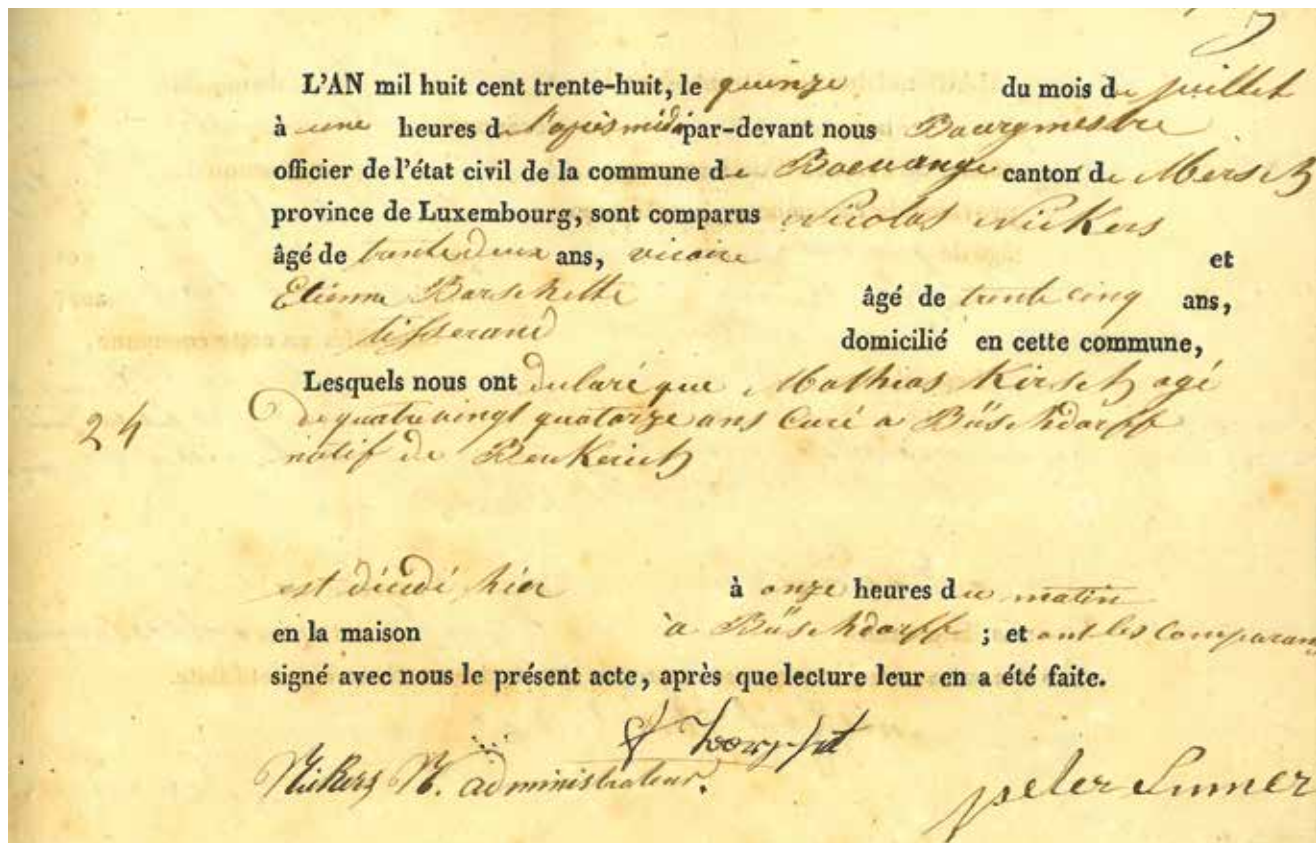 L'AN mil huit cent trente-huit, le quinze du mois de juillet
à une heures de l'après midi par-devant nous Bourgmestre
officier de l'état civil de la commune de Boevange canton de Mersch
province de Luxembourg, sont comparus Nicolas Nickers
âgé de trente deux ans, vicaire et
Etienne Barschette âgé de trente cinq ans,
tisserand domicilié en cette commune,
Lesquels nous ont declaré que Mathias Kirsch agé
24 de quatre vingt quatorze ans Curé a Büschdorff
natif de
est décédé hier à onze heures du matin
en la maison à Büschdorff ; et ont les Comparans
signé avec nous le présent acte, après que lecture leur en a été faite.
Nickers N. administrateur.
peter